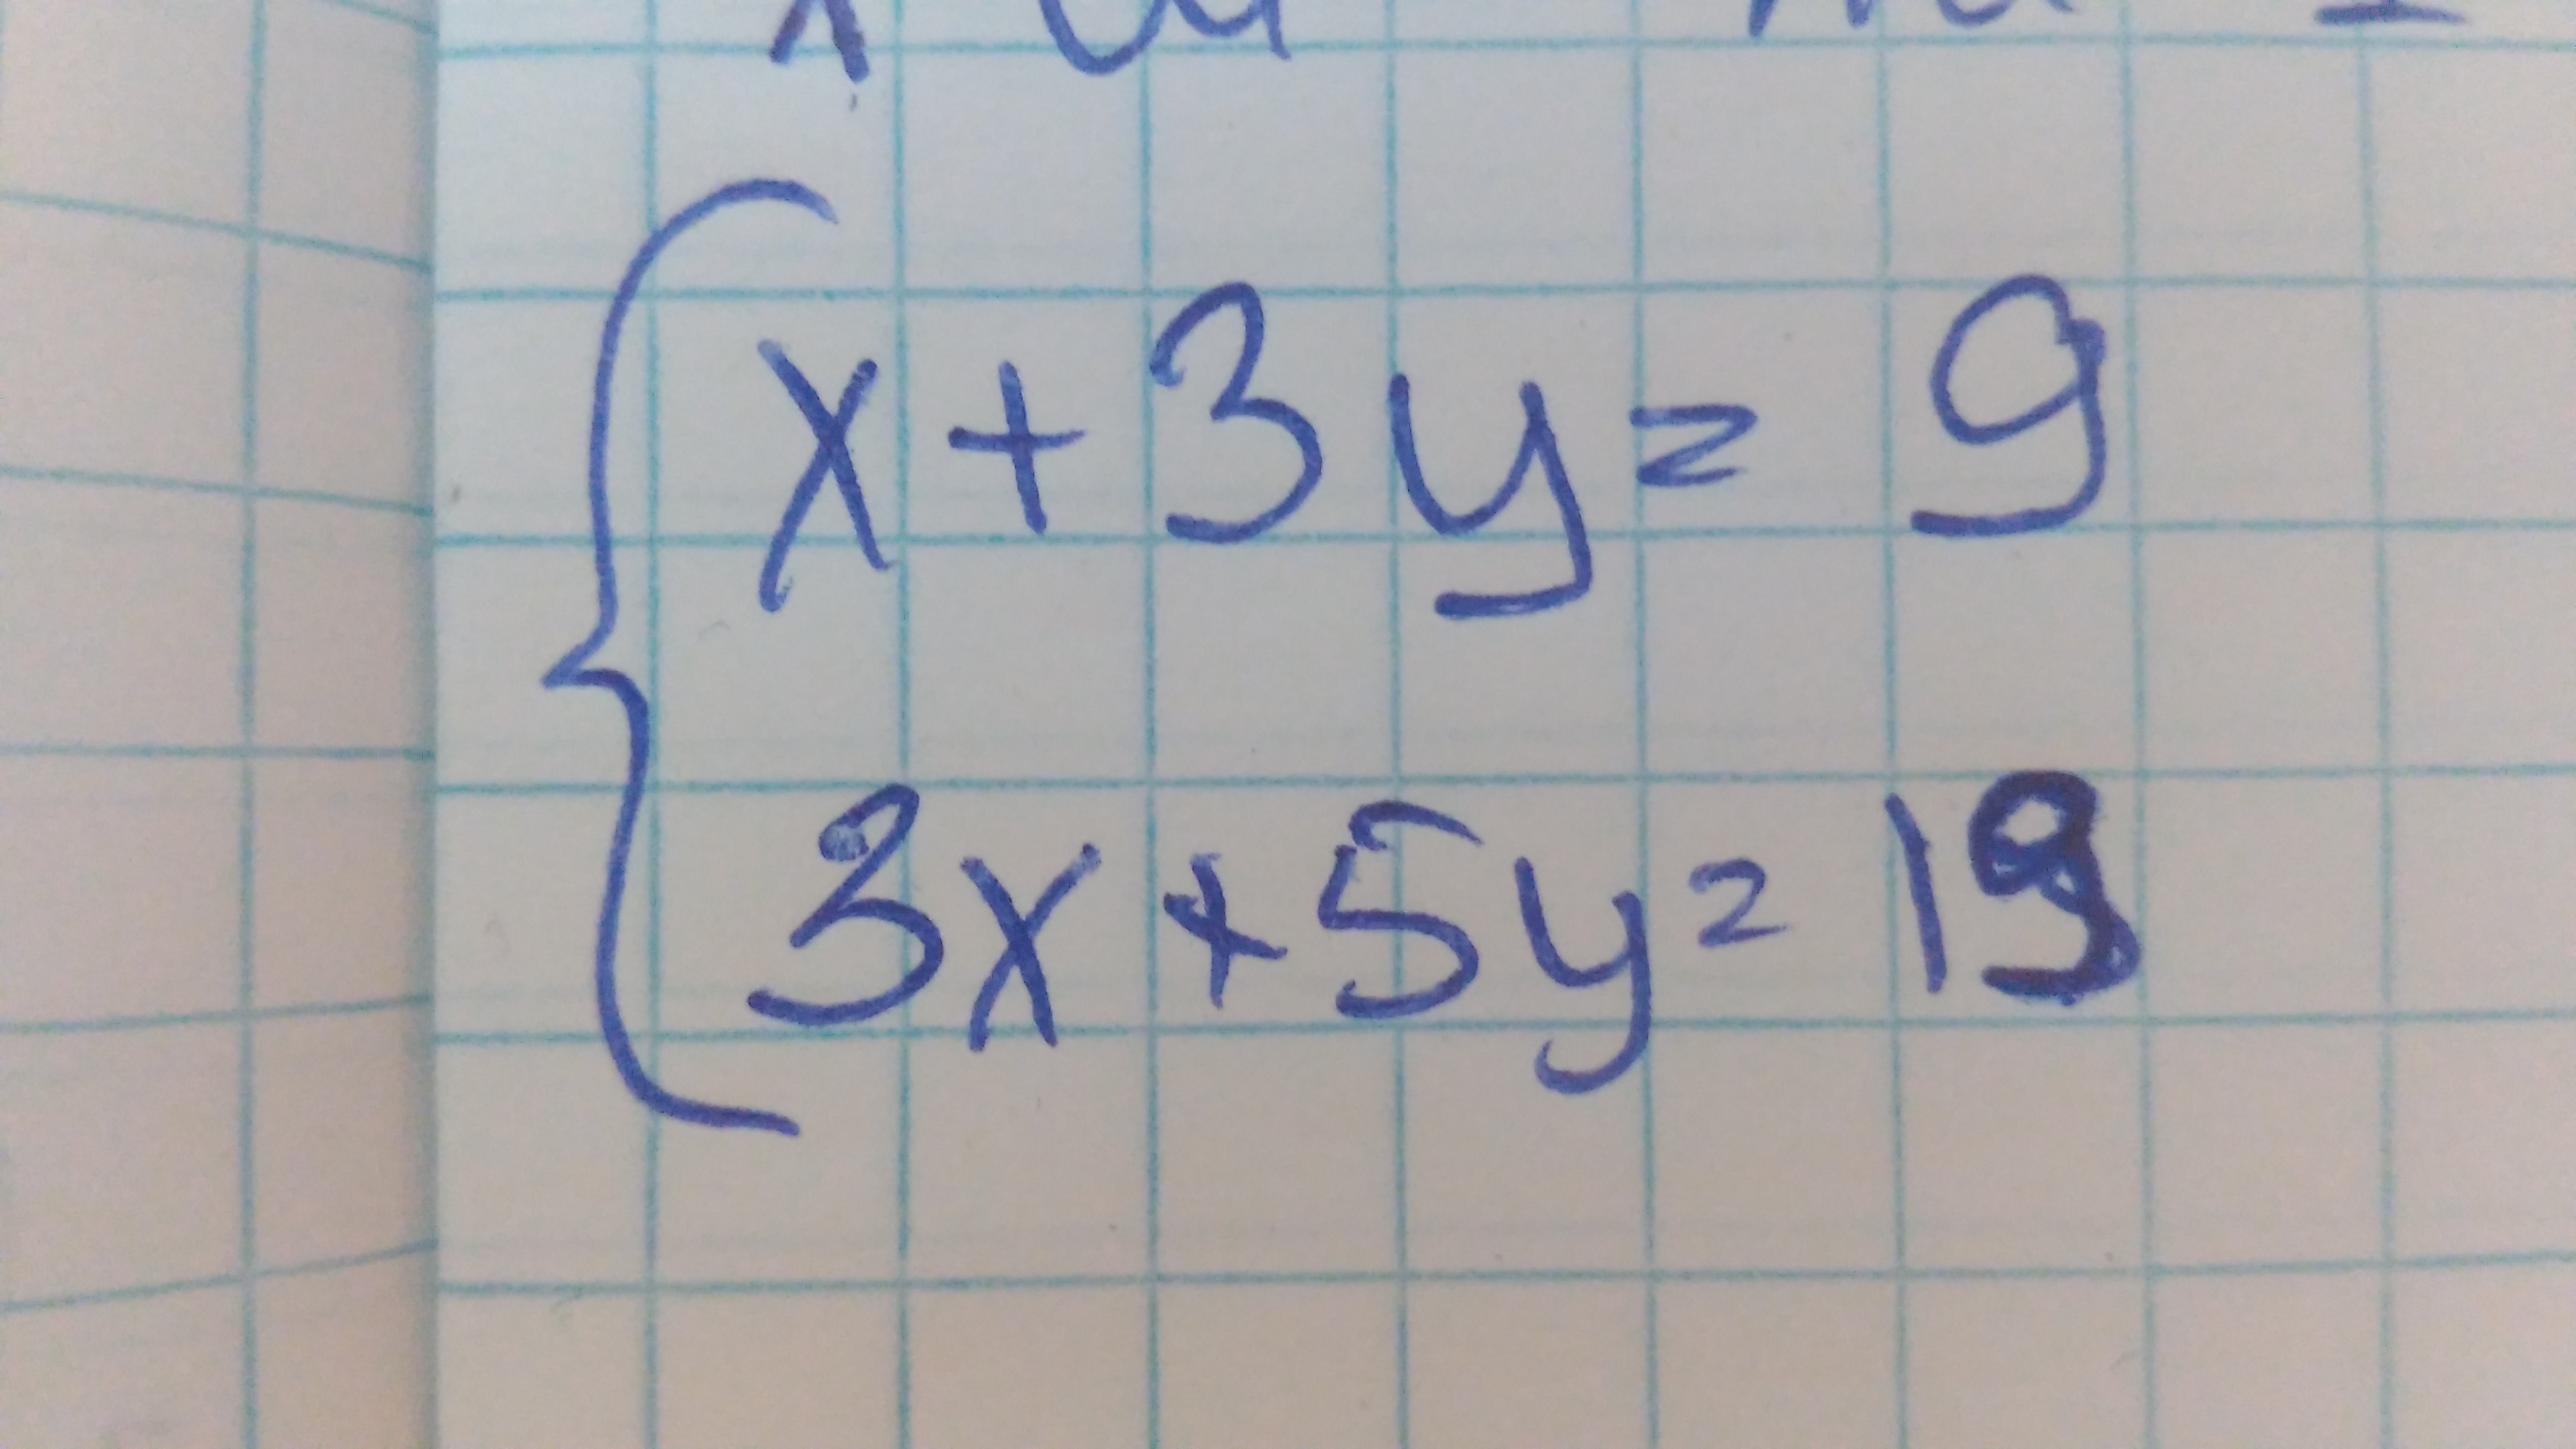 x+3y=9
3x+5y=19